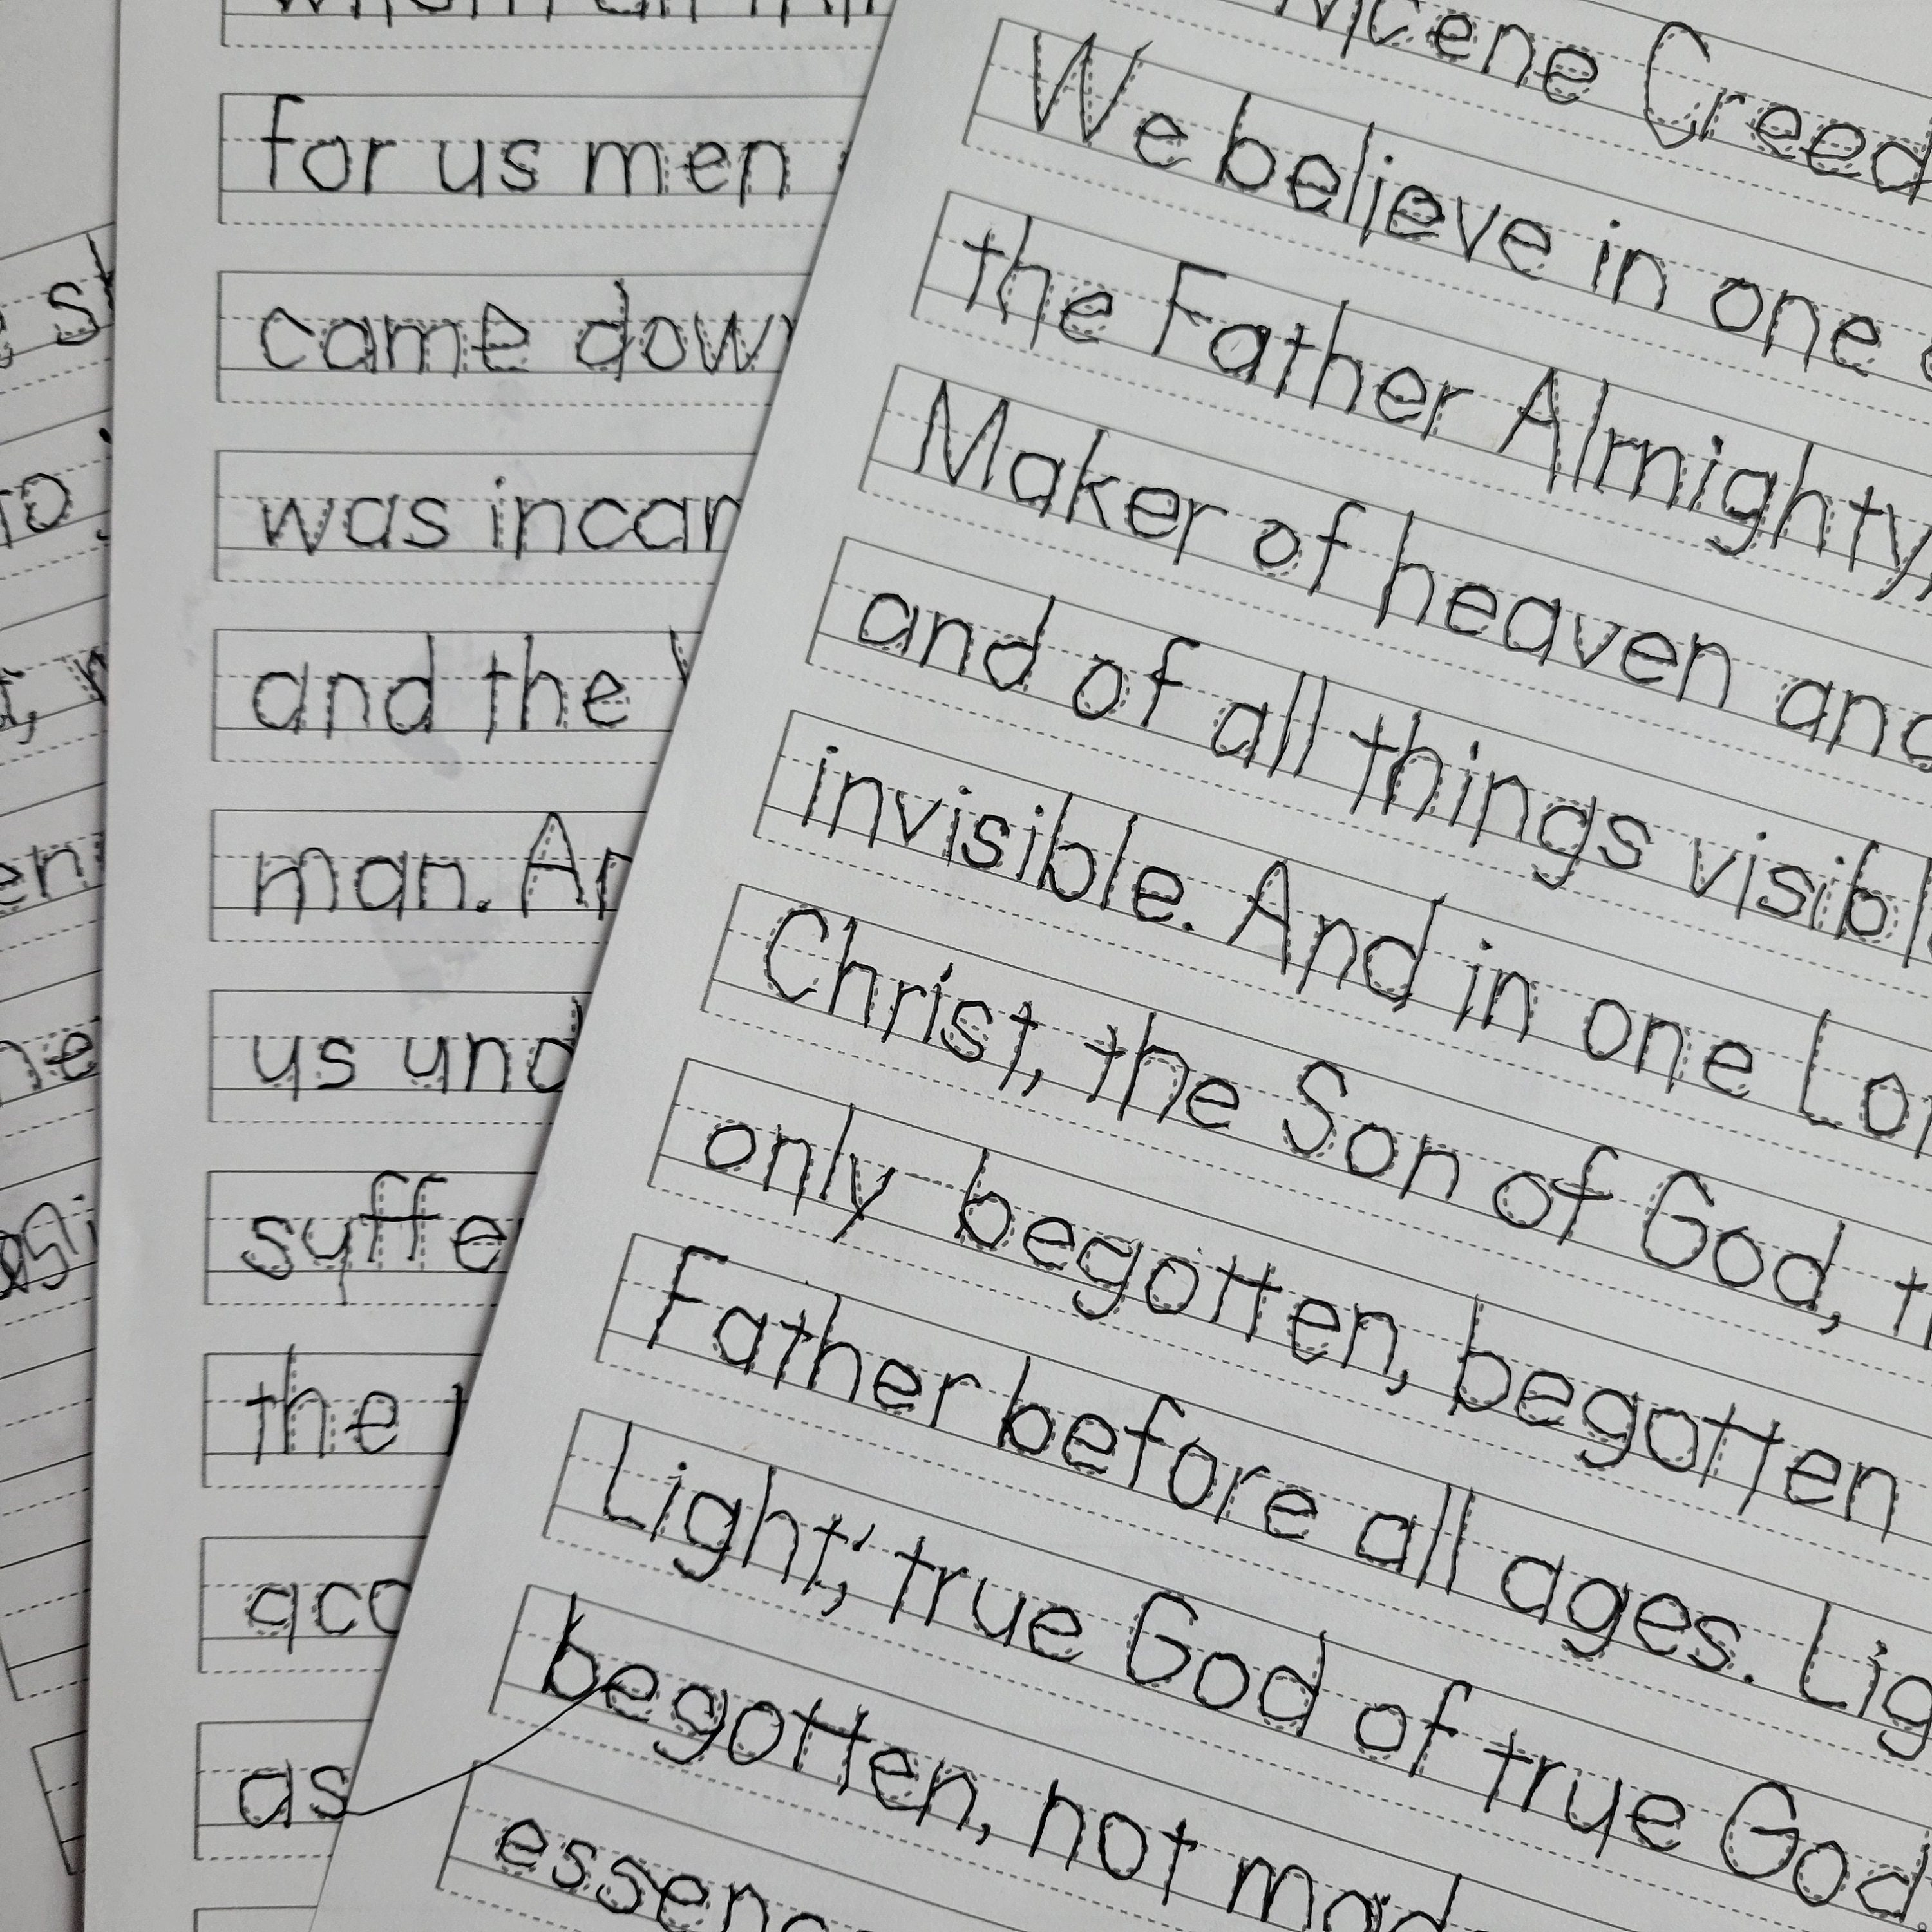 Nicene Creed
We believe in one
the Father Almighty,
Maker of heaven and
and of all things visible
invisible. And in one Lor
Christ, the Son of God, t
only begotten, begotten
Father before all ages. Lig
Light; true God of true God
begotten, not mad
essenc
for us men
came down
was incar
and the
man. An
us und
suffe
the
acc
as